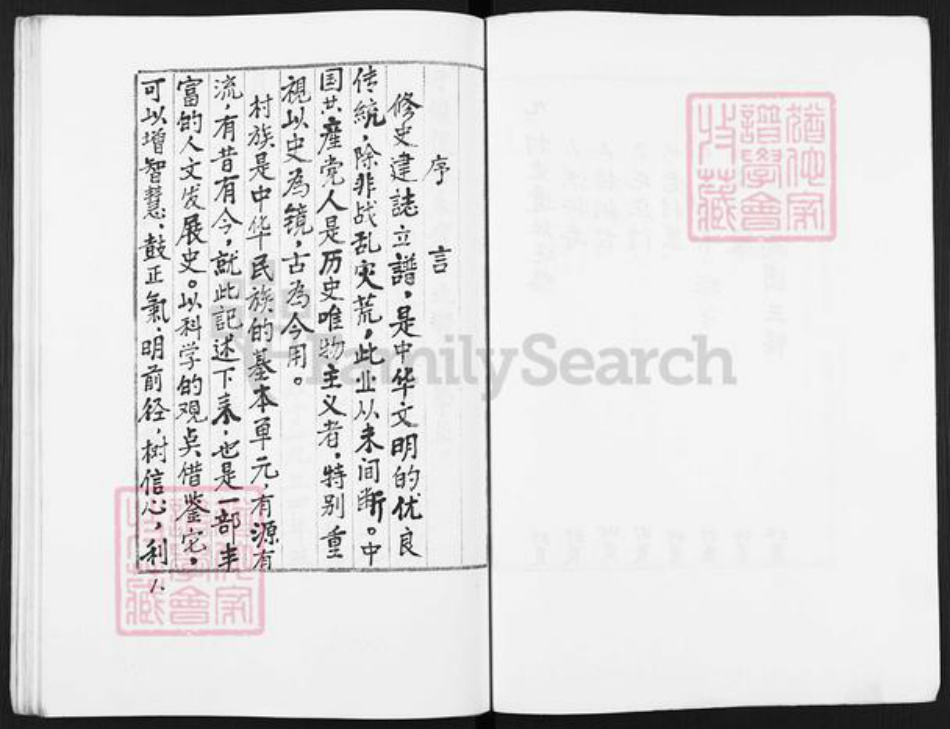 序言
修史建誌立譜，是中华文明的优良
传統，除非战乱灾荒，此业从未间断。中
国共産党人是历史唯物主义者，特别重
視以史為镜，古為今用。
村族是中华民族的基本单元，有源有
流，有昔有今，就此記述下来，也是一部丰
富的人文发展史。以科学的观点借鉴它，
可以增智慧、鼓正氣、明前径，树信心，利
1
FamilySearch
猶他家
譜學會
收藏
猶他家
譜學會
收藏